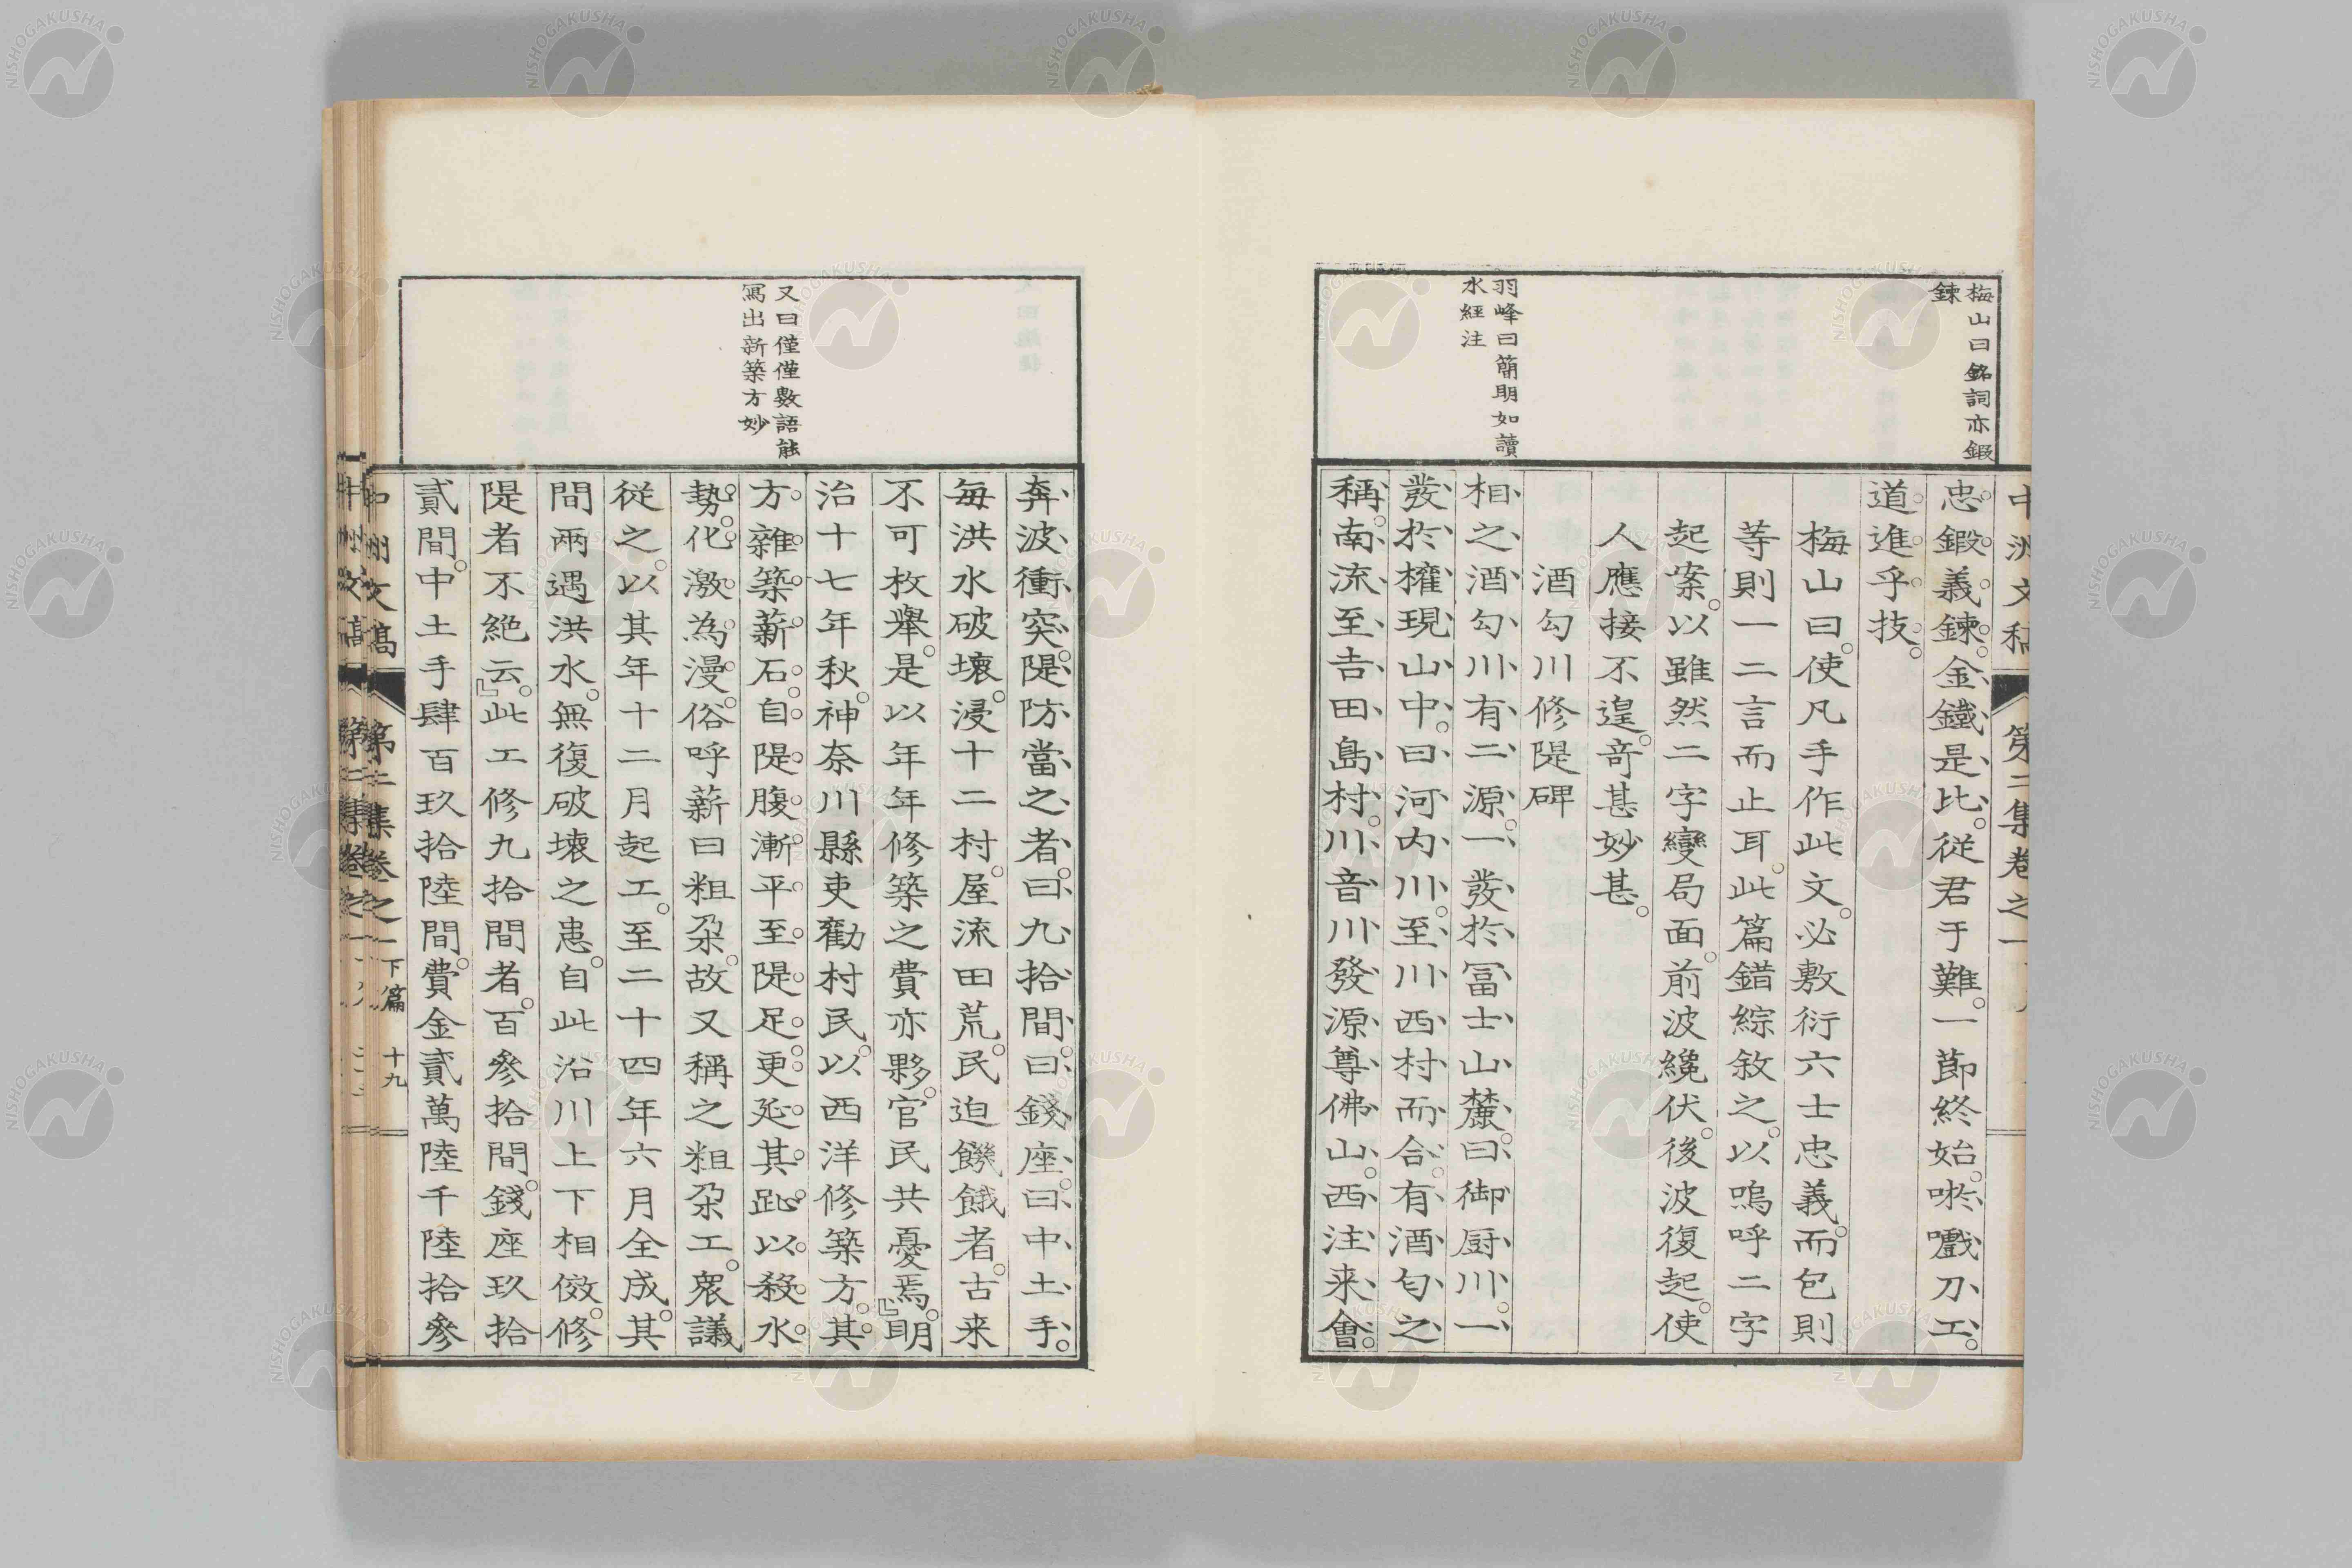 梅山曰銘詞亦鍛
鍊
忠鍛義鍊。金鐵是比。從君于難。一節終始。唹嚱刀工。
道進乎技。
梅山曰。使凡手作此文。必敷衍六士忠義。而包則
等則一二言而止耳。此篇錯綜敘之。以嗚呼二字
起案。以雖然二字變局面。前波纔伏。後波復起。使
人應接不遑。奇甚妙甚。
酒勾川修隄碑
羽峰曰簡明如讀
水經注
相之酒勾川有二源。一發於冨士山麓。曰御厨川。一
發於權現山中。曰河内川。至川西村而合。有酒匂之
稱。南流至吉田島村。川音川發源尊佛山。西注来會。
奔波衝突。隄防當之者。曰九拾間。曰錢座。曰中土手。
每洪水破壞。浸十二村。屋流田荒。民迫饑餓者。古来
不可枚舉。是以年年修築之費亦夥。官民共憂焉。』明
治十七年秋。神奈川縣吏勸村民。以西洋修築方。其
又曰僅僅數語能
寫出新築方妙
方雜築薪石。自隄腹漸平至隄足。更延其趾。以殺水
勢。化激為漫。俗呼薪曰粗朶。故又稱之粗朶工。衆議
從之。以其年十二月起工。至二十四年六月全成。其
間兩遇洪水。無復破壞之患。自此沿川上下相傚。修
隄者不絕云。』此工修九拾間者。百參拾間。錢座玖拾
貳間。中土手肆百玖拾陸間。費金貳萬陸千陸拾參
中洲文稿 第二集卷之一 下篇 十九